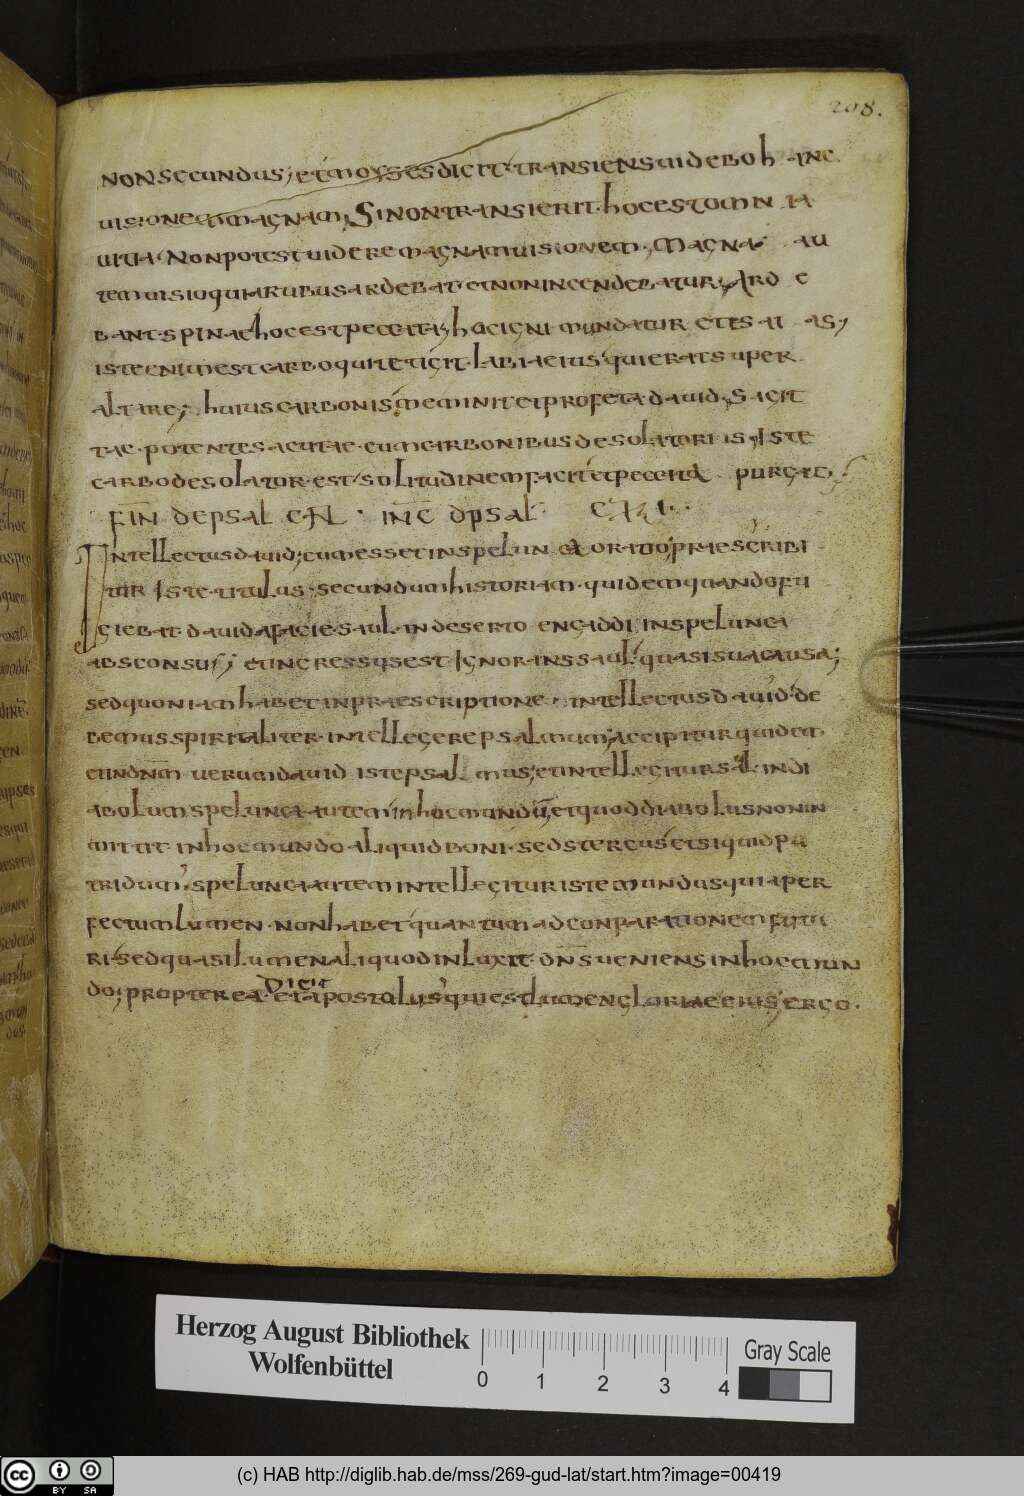 208.
non secundus; et moyses dicit· transiens uidebo h anc
uisionem magnam; Si non transierit· hoc est omn ia
uitia· Non potest uidere magnam uisionem; Magna· au
tem uisio quia rubus ardebat· et non incendebatur; Ard e
bant spinae hoc est peccata; hac igni mundatur
iste enim est carbo qui tetigit· labia eius· qui erat super
altare; huius carbonis meminit et profeta dauid; Sagit
tae· potentes acutae· cum carbonibus desolatoriis; Iste
carbo desolator· est· solitudinem facit et peccata purgat;
FIN DE PSAL INC D PSAL
Intellectus dauid; cum esset in spelun ca oratio; praescribi
tur Iste· titulus· secundum historiam· quidem quando fu
giebat· dauid a facie saul· in deserto engaddi; in spelunca
absconsus; et ingressus est Ignorans saul· quasi sua causa;
sed quoniam habet in praescriptione· intellectus dauid· de
bemus spiritaliter· intellegere psalmum; accipitur quidem
uerum dauid iste psal mus; et intellegitur saul· in di
abolum spelunca· autem in hoc mundū; et quod diabolus non in
mittit· in hoc mundo aliquid boni· sed stercus et si quid pu
tridum; spelunca autem intellegitur iste mundus quia per
fectum lumen· non habet quantum ad conparationem futu
ri· sed quasi lumen aliquod in luxit· dns ueniens in hoc mun
do; propterea dicit et apostolus· qui est lumen gloriae eius· ergo·
Herzog August Bibliothek
Wolfenbüttel
0 1 2 3 4
Gray Scale
cc BY SA
(c) HAB http://diglib.hab.de/mss/269-gud-lat/start.htm?image=00419